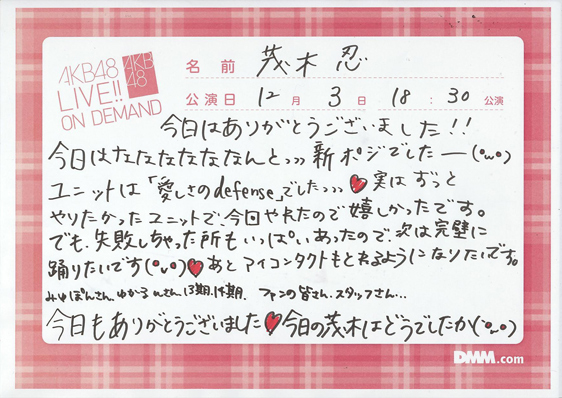 AKB48
LIVE!!
ON DEMAND
AKB
48
名前 茂木 忍
公演日 12月 3日 18:30 公演
今日はありがとうございました!!
今日はなななななななんとっっっ新ポジでしたー(°ω°)
ユニットは「愛しさのdefense」でしたっっっ♥実はずっと
やりたかったユニットで、今回やれたので嬉しかったです。
でも、失敗しちゃった所もいっぱいあったので、次は完璧に
踊りたいです(°ω°)♥あとアイコンタクトもとれるようになりたいです。
みゆぽんさん、ゆかるんさん、13期、14期、ファンの皆さん、スタッフさん…
今日もありがとうございました♥今日の茂木はどうでしたか(°ω°)
DMM.com